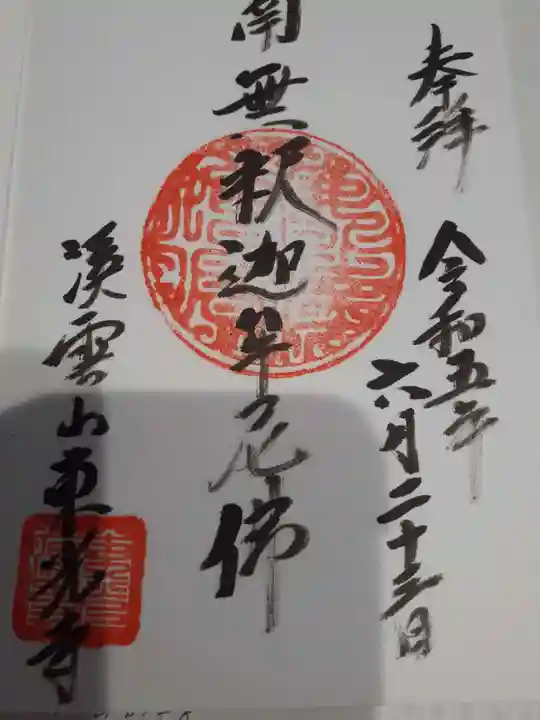 奉拝
令和五年
六月二十三日
南無釈迦牟尼佛
溪雲山東光寺